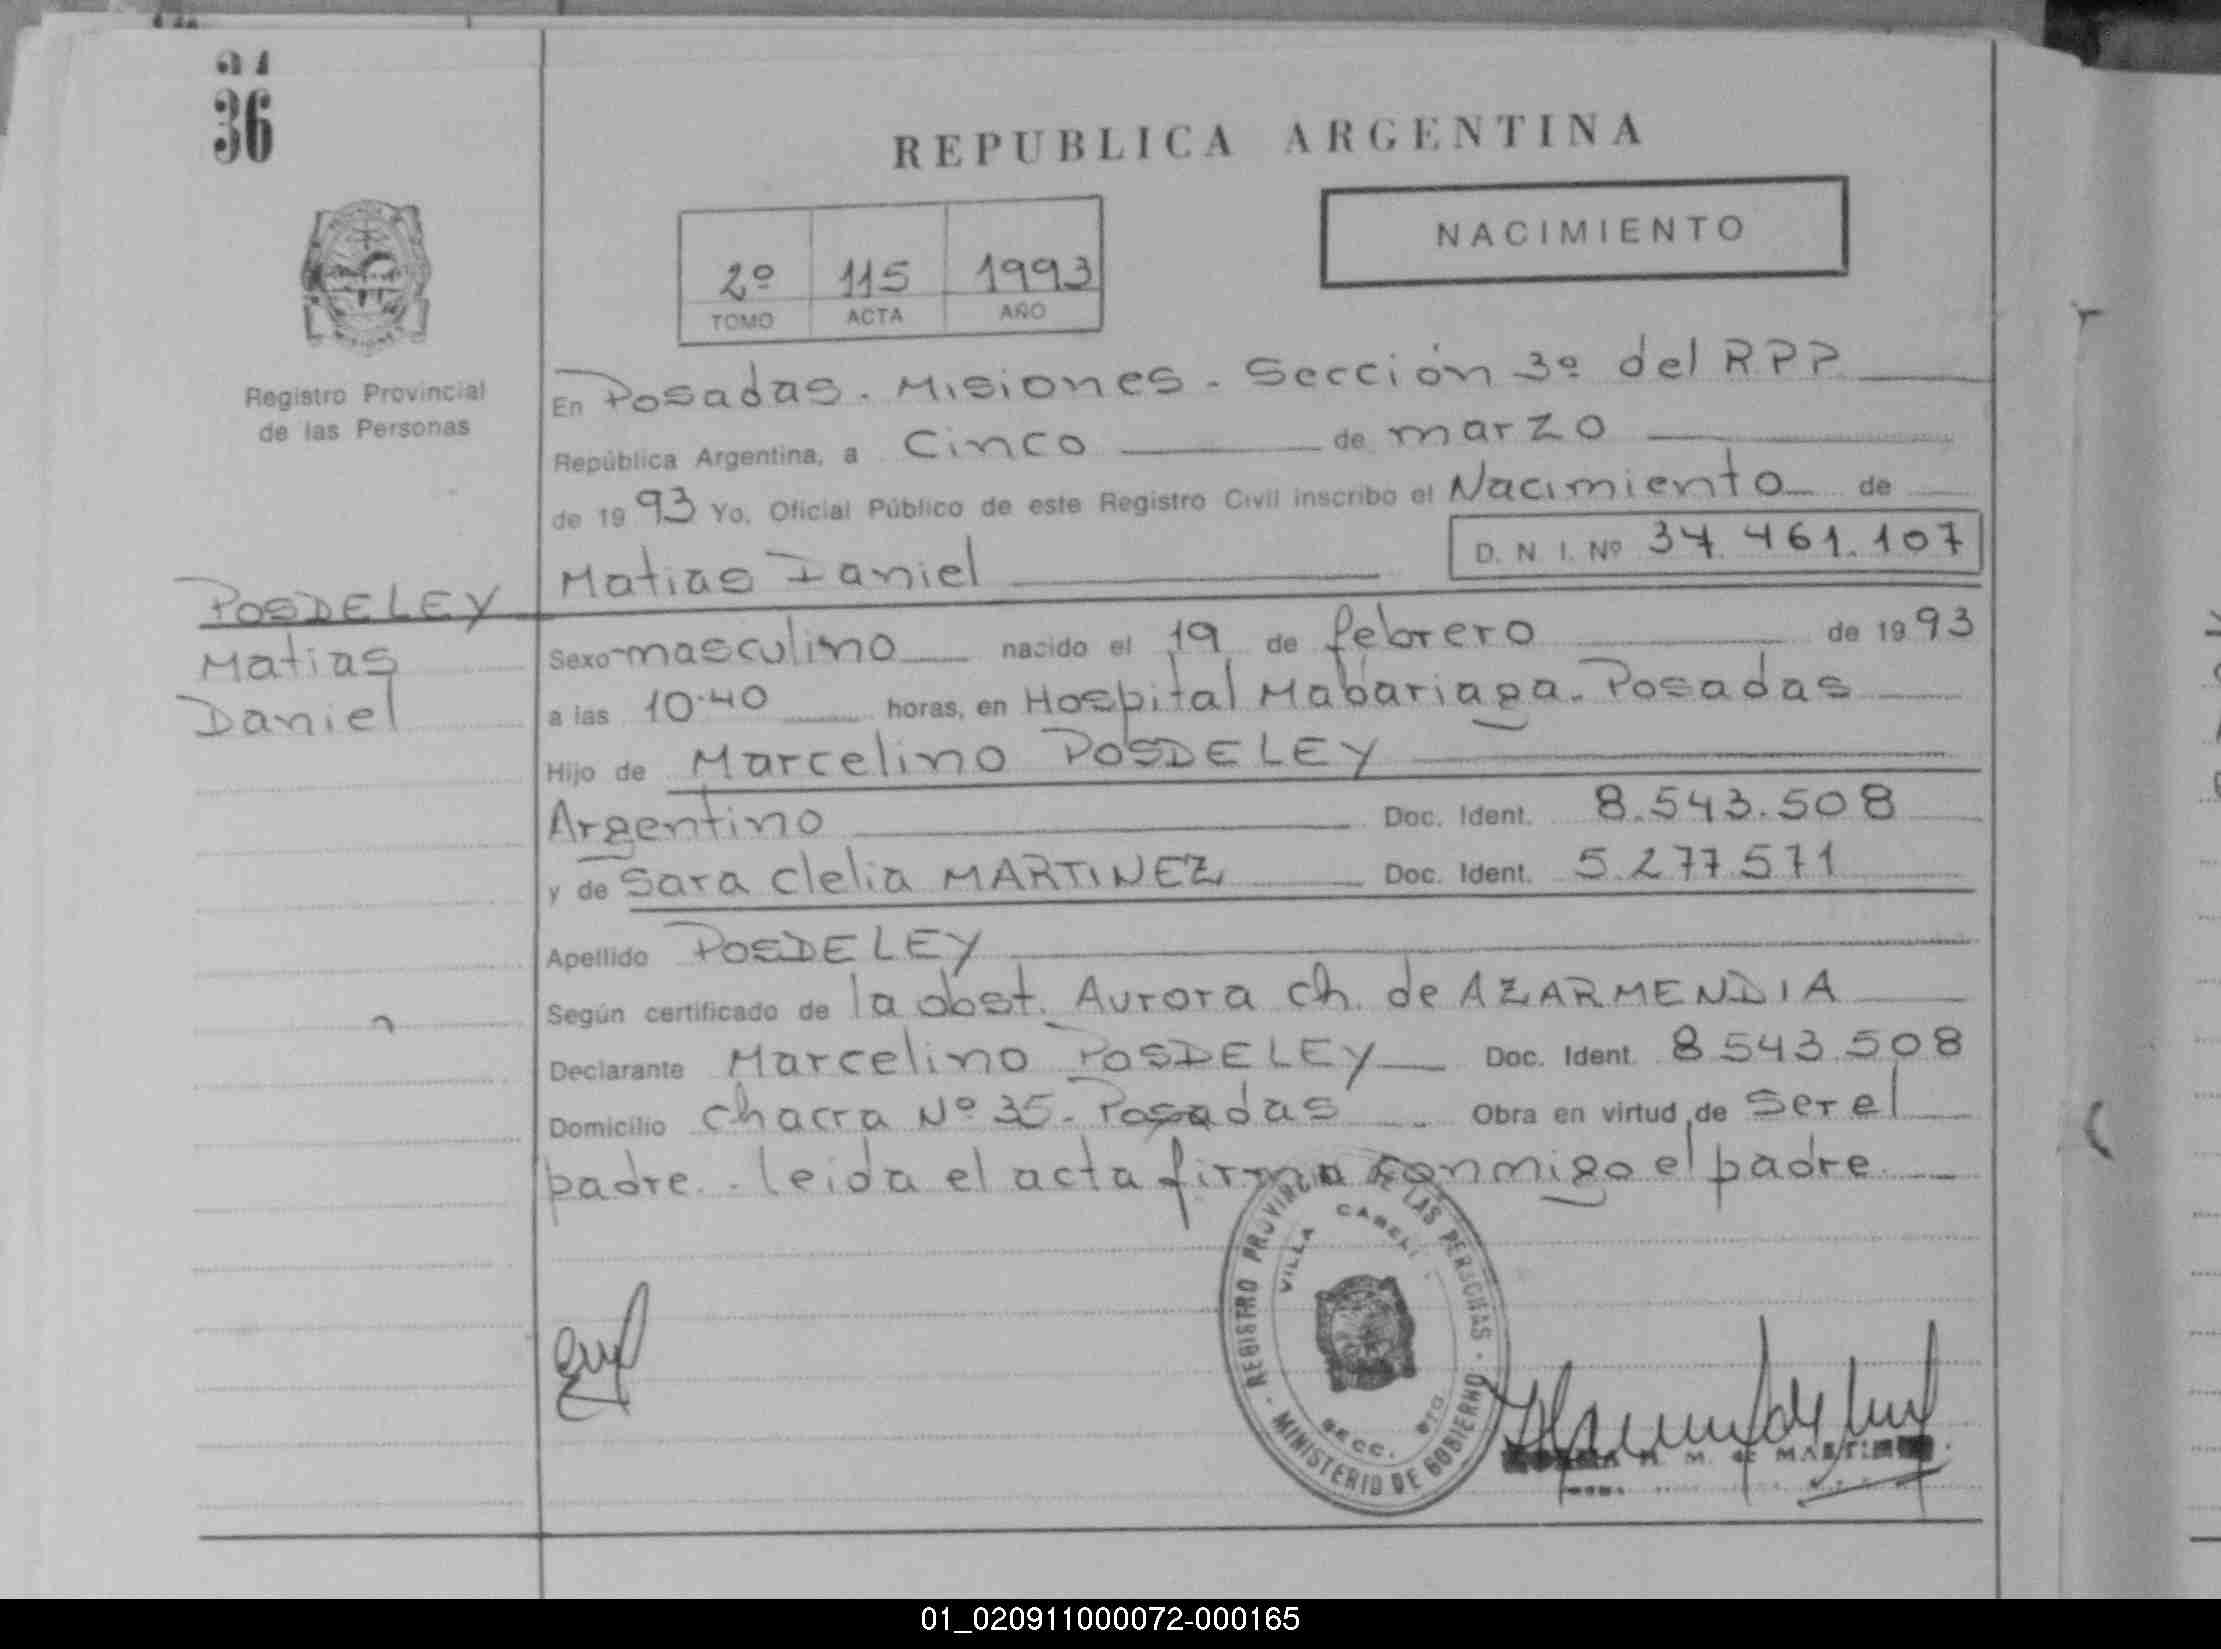 36
REPUBLICA ARGENTINA
NACIMIENTO
2º 115 1993
TOMO ACTA AÑO
Registro Provincial
de las Personas
En Posadas. Misiones. Sección 3º del RPP
República Argentina, a Cinco de marzo
de 1993 Yo, Oficial Público de este Registro Civil inscribo el Nacimiento de
D. N. I. Nº 37.461.107
Matias Daniel
POSDELEY
Matias
Daniel
Sexo masculino nacido el 19 de febrero de 1993
a las 10.40 horas, en Hospital Mabariaga. Posadas
Hijo de Marcelino POSDELEY
Argentino Doc. Ident. 8.543.508
y de Sara Clelia MARTINEZ Doc. Ident. 5.277.571
Apellido POSDELEY
Según certificado de la obst. Aurora Ch. de AZARMENDIA
Declarante Marcelino POSDELEY Doc. Ident. 8.543.508
Domicilio Chacra Nº 35. Posadas Obra en virtud de Ser el
padre. leida el acta firma conmigo el padre
REGISTRO PROVINCIAL DE LAS PERSONAS
VILLA CABELLO
SECC.
MINISTERIO DE GOBIERNO
M. de
01_020911000072-000165